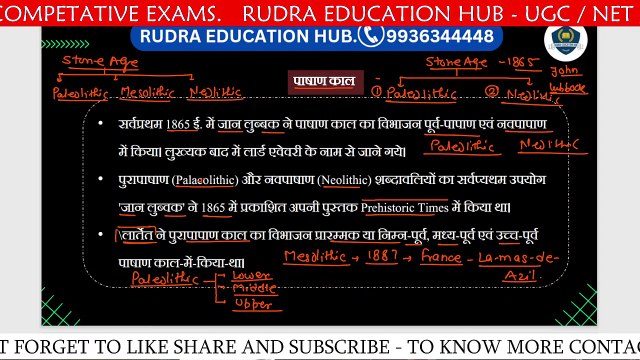 COMPETATIVE EXAMS. RUDRA EDUCATION HUB - UGC / NET
RUDRA EDUCATION HUB. 9936344448
Stone Age
Paleolithic Mesolithic Neolithic
पाषाण काल
Stone Age - 1865
John Lubbock
① Paleolithic ② Neolithic
• सर्वप्रथम 1865 ई. में जान लुब्बक ने पाषाण काल का विभाजन पूर्व-पापाण एवं नवपापाण
में किया। लुख्यक बाद में लार्ड एवेवरी के नाम से जाने गये।
Paleolithic Neolithic
• पुरापाषाण (Palaeolithic) और नवपाषाण (Neolithic) शब्दावलियों का सर्वप्यथम उपयोग
'जान लुब्वक' ने 1865 में प्रकाशित अपनी पुस्तक Prehistoric Times में किया था।
• लार्तेत ने पुरापापाण काल का विभाजन प्रारम्मक या निम्न-पूर्व, मध्य-पूर्व एवं उच्च-पूर्व
पाषाण काल-में-किया-था।
Mesolithic → 1887 → France - La-mas-de-
Azil
Paleolithic
Lower
Middle
Upper
T FORGET TO LIKE SHARE AND SUBSCRIBE - TO KNOW MORE CONTAC